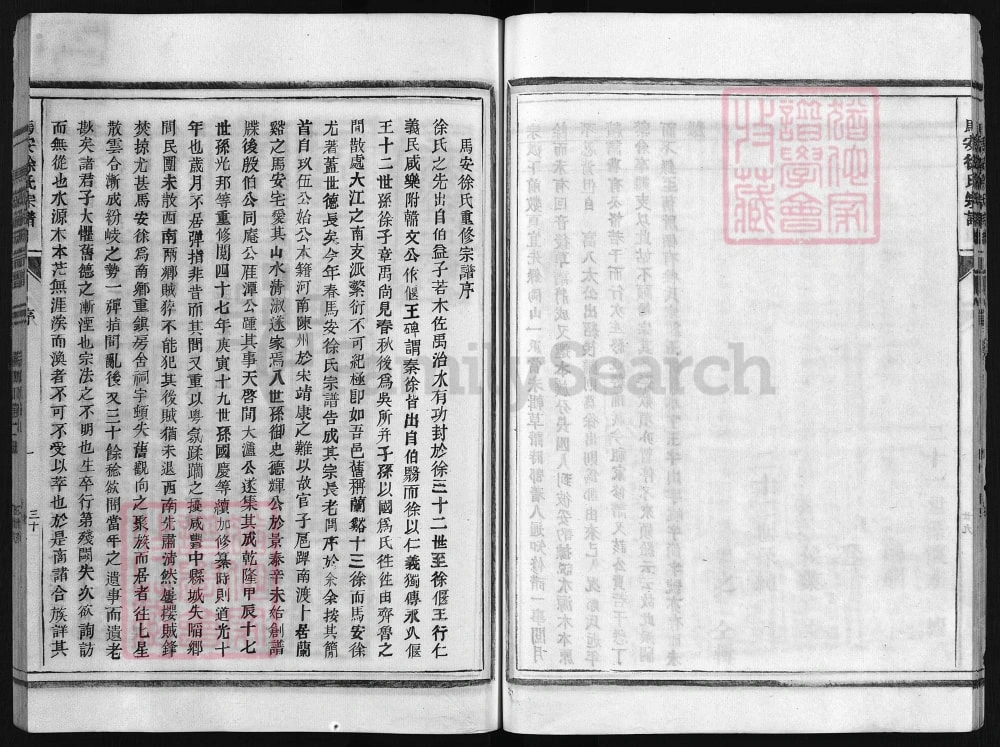 馬安徐氏宗譜
廿九
馬安徐氏重修宗譜序
徐氏之先出自伯益子若木佐禹治水有功封於徐三十二世至徐偃王行仁
義民咸樂附韓文公作偃王碑謂秦徐皆出自伯翳而徐以仁義獨傳永久偃
王十二世孫徐子章禹尚見春秋後為吳所并子孫以國為氏徃徃由齊魯之
間散處大江之南支派繁衍不可紀極即如吾邑舊稱蘭谿十三徐而馬安徐
尤著蓋世德長矣今年春馬安徐氏宗譜告成其宗長老問序於余余按其簡
首自玖伍公始公本籍河南陳州於宋靖康之難以故官子扈蹕南渡卜居蘭
谿之馬安宅愛其山水清淑遂家焉八世孫御史德輝公於景泰辛未始創譜
牒後殷伯公同庵公涯潭公踵其事天啓間大瀛公遂集其成乾隆甲辰十七
世孫光邦等重修閱四十七年庚寅十九世孫國慶等續加修纂時則道光十
年也歲月不居彈指非昔而其間又重以粵氛蹂躪之擾咸豐中縣城失陷鄉
間民團未散西南兩鄉賊猝不能犯其後賊猶未退西南先肅清然屢攖賊鋒
焚掠尤甚馬安徐為南鄉重鎮房舍祠宇頓失舊觀向之聚族而居者徃七星
散雲合漸成紛岐之勢一彈指間亂後又三十餘稔欲問當年之遺事而遺老
尠矣諸君子大懼舊德之漸湮也宗法之不明也生卒行第殘闕失次欲詢訪
而無從也水源木本茫無涯涘而渙者不可不受以萃也於是商諸合族詳其
馬安徐氏宗譜
序
三十
FamilySearch